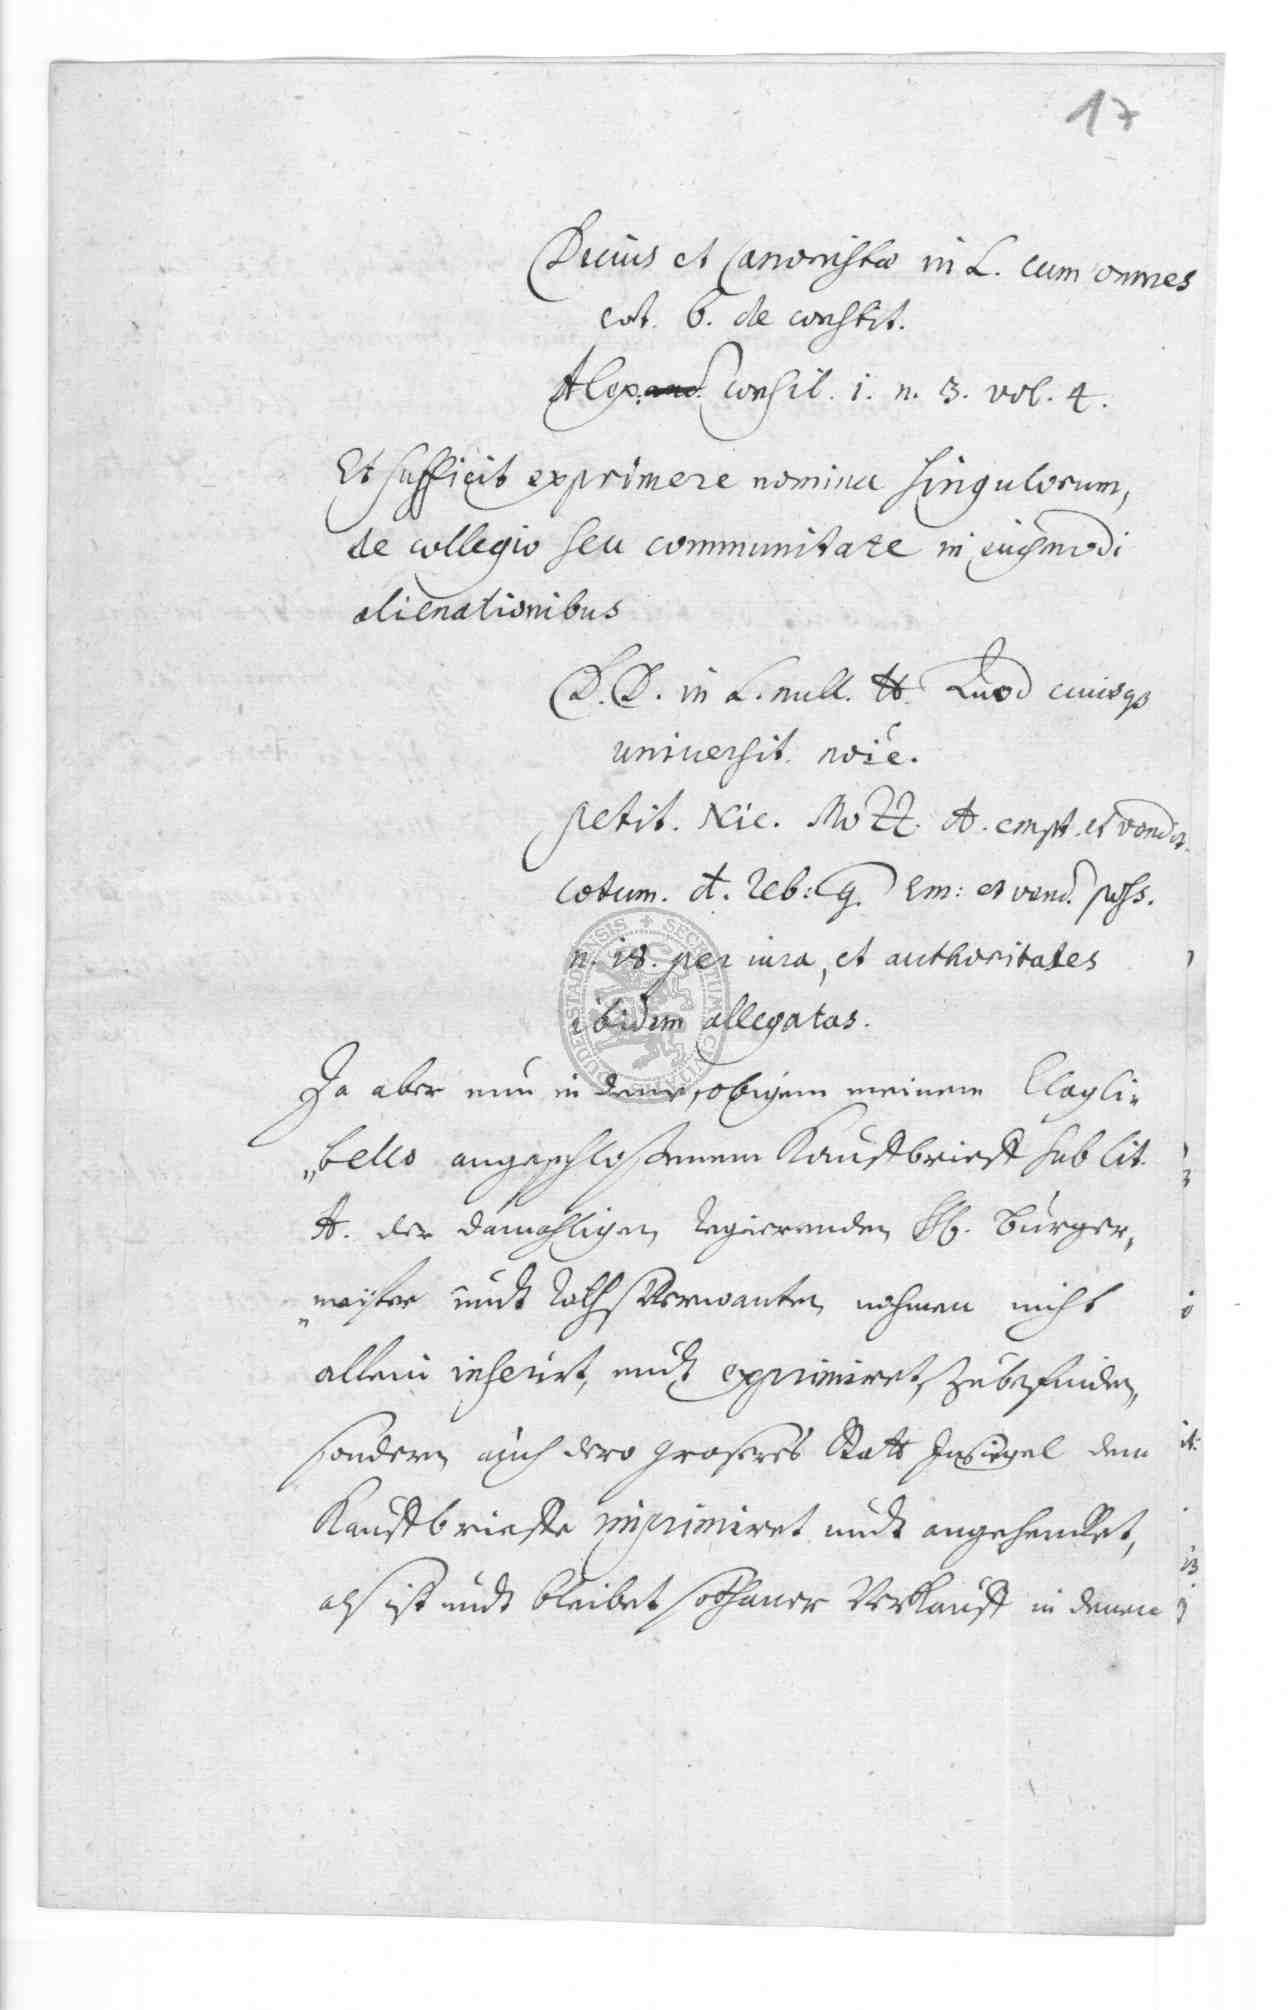 17
Decius et Canonistæ in L. cum omnes
col. 6. de constit.
Alex. consil. 1. n. 3. vol. 4.
Et sufficit exprimere nomina singulorum,
de collegio seu communitate in eiusmodi
alienationibus
D.D. in L. null. ff. Quod cuiusqꝫ
universit. noīe.
petit. Nic. Mozz. tt. empt. et vendit.
cotum. tt. reb: q. em: et vend. poss.
n. 18. per iura, et authoritates
ibidem allegatas.
Da aber nun in deme, obigem meinem Clagli-
"bello angeschloßenem Kauffbrieff sub lit.
A. der damahligen regierenden HH. Bürger,
"meister undt Rathsverwanten nahmen nicht
allein inserirt, undt exprimiret, zubefinden,
sondern auch dero großes Statt Insiegel dem
Kauffbrieffe imprimiret undt angehencket,
als ist undt bleibet sothaner Verkauff in denen
SECRETUM CIVITATIS DUDERSTADENSIS